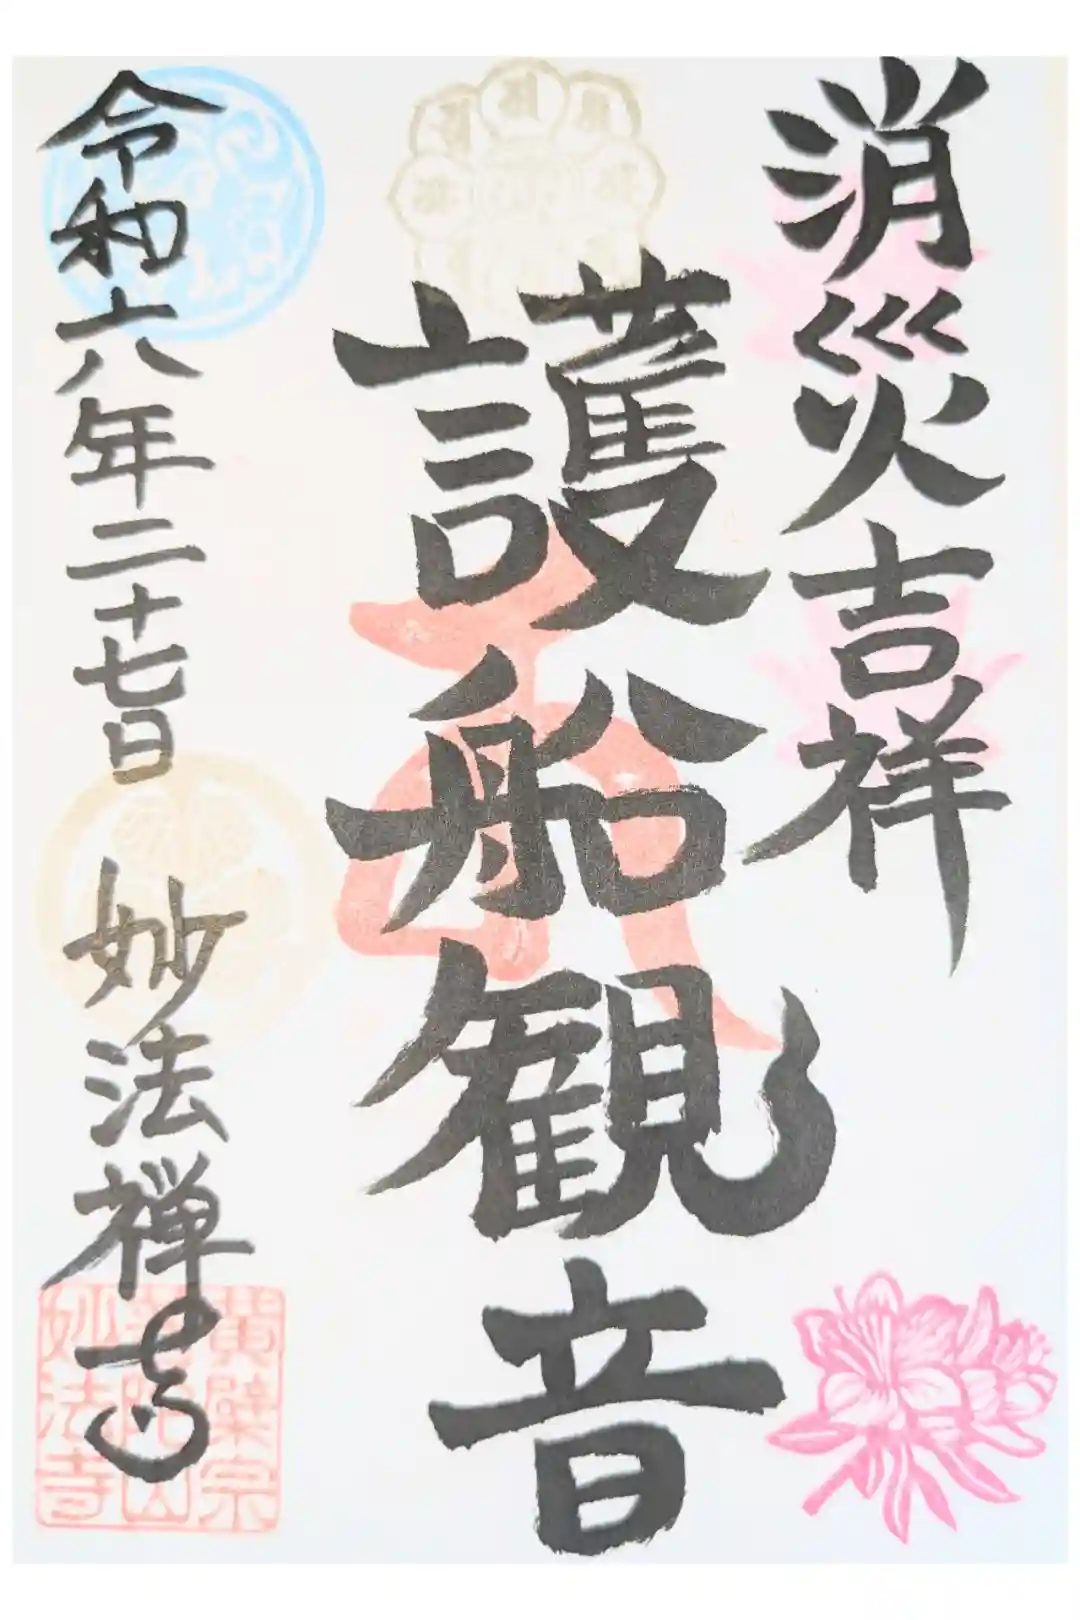 消災吉祥
護船観音
令和六年二十七日
妙法禅寺
黄檗宗
妙法寺